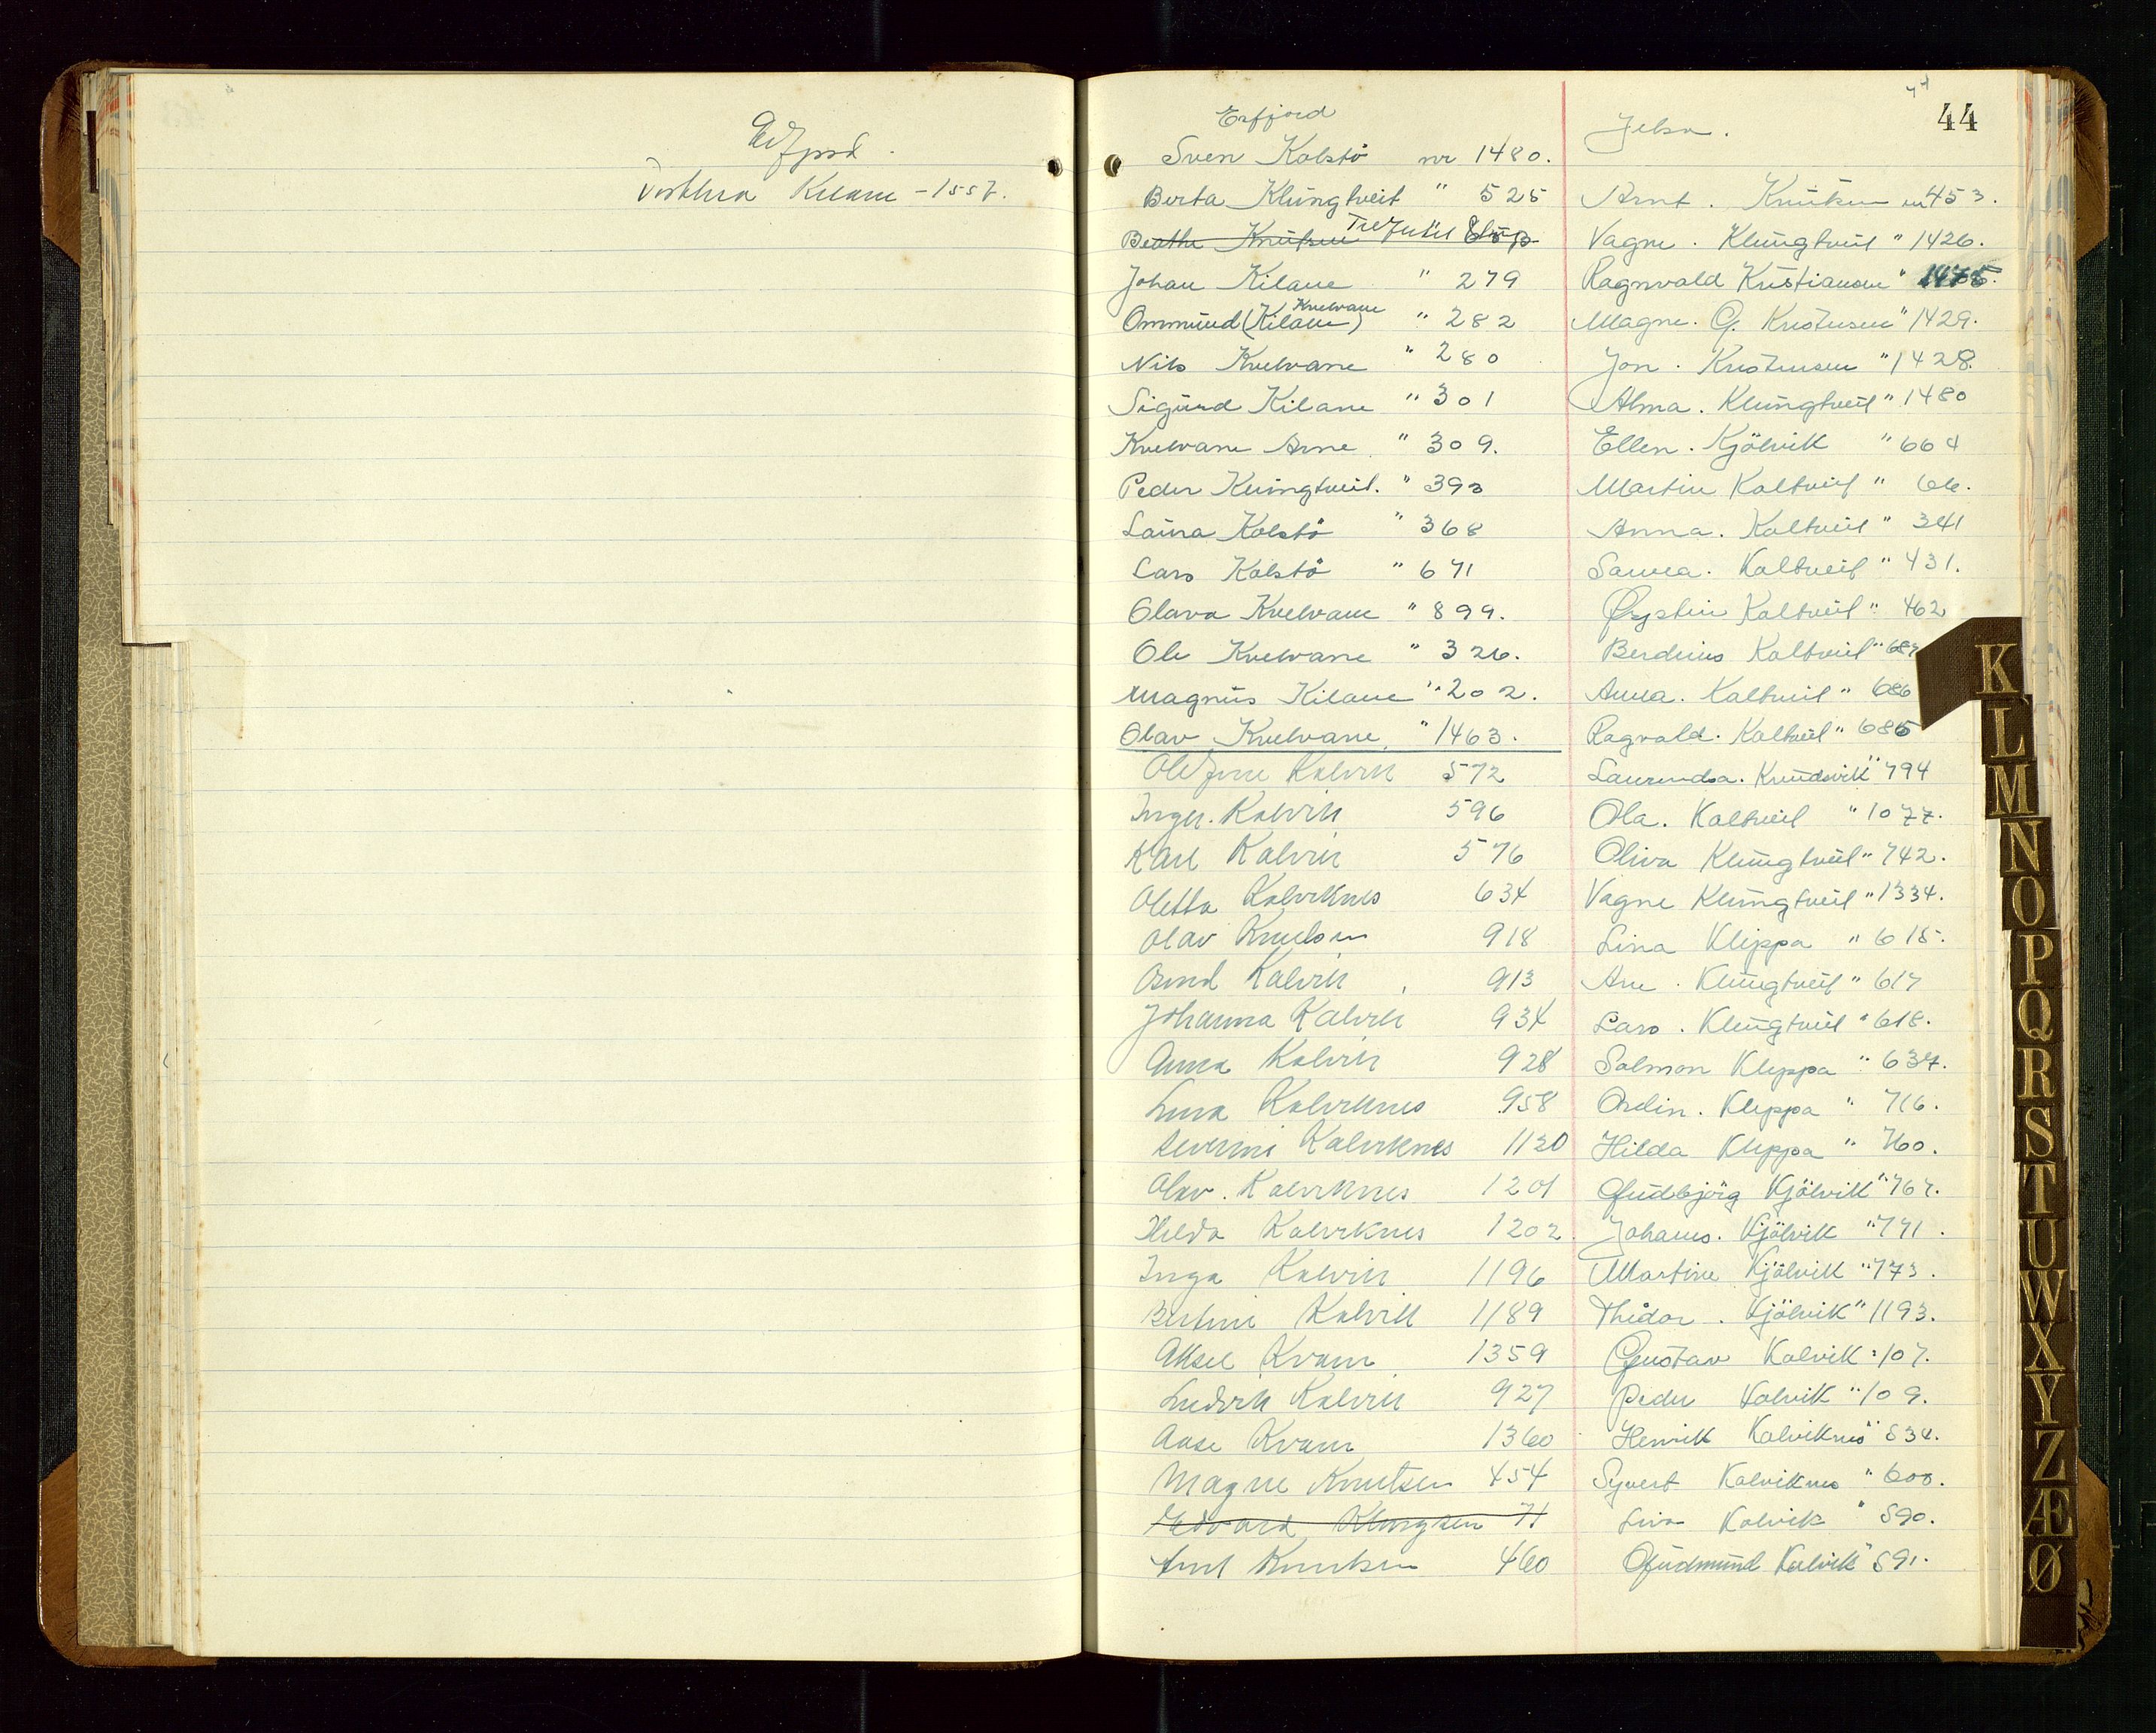 Erfjord.
Dorthea Kilane - 1557.
Erfjord
Sven Kolstö nr 1480.
Berta Klungtveit " 525
Beathe Knutsen
Johan Kilane " 279
Ommund (Kilane) Kvelvane " 282
Nils Kvelvane " 280
Sigurd Kilane " 301
Kvelvane Arne " 309.
Peder Klungtveit. " 393
Laura Kolstö " 368
Lars Kolstö " 671
Olava Kvelvane " 899.
Ole Kvelvane " 326.
Magnus Kilane " 202.
Olav Kvelvane " 1463.
Kalvik 572
Inger. Kalvik 596
Karl Kalvik 576
Oletta Kalviknes 634
Olav Knutsen 918
Kalvik 913
Johanna Kalvik 934
Anna Kalvik 928
Kalviknes 958
Severine Kalviknes 1120
Olav. Kalviknes 1201
Hilda Kalviknes 1202
Inga Kalvik 1196
Bertine Kalvik 1189
Aksel Kvam 1359
Ludvik Kalvik 927
Aase Kvam 1360
Magne Knutsen 454
Edvard 71
Knutsen 460
44
Jelsa.
Arnt. Knutsen nr 453.
Vagne. Klungtveit " 1426.
Ragnvald Kristiansen " 1475.
Magne. G. Kristensen " 1429.
Jon. Kristensen " 1428.
Alma. Klungtveit " 1480
Ellen. Kjölvik " 664
Martin Kaltveit " 66.
Anna. Kaltveit " 341
Kaltveit " 431.
Øystein Kaltveit " 462
Berdinus Kaltveit "
Anna. Kaltveit " 686
Ragvald. Kaltveit " 685
Laurendsa. Knudsvik " 794
Ola. Kaltveit " 1077.
Oliva Klungtveit " 742.
Vagne Klungtveit " 1334.
Lina Kleppa " 615.
Arne. Klungtveit " 617
Lars. Klungtveit " 618.
Salmon Kleppa " 637.
Ordin. Kleppa " 716.
Hilda Kleppa " 760.
Gudbjörg Kjölvik " 767.
Johanes. Kjölvik " 771.
Martine Kjölvik " 773.
Thidor. Kjölvik " 1193.
Gustav Kalvik " 107.
Peder Kalvik " 109.
Henrik Kalviknes " 534.
Syvert Kalviknes " 600.
Lina Kalvik " 590.
Gudmund Kalvik " 591.
K
L
M
N
O
P
Q
R
S
T
U
W
X
Y
Z
Æ
Ø